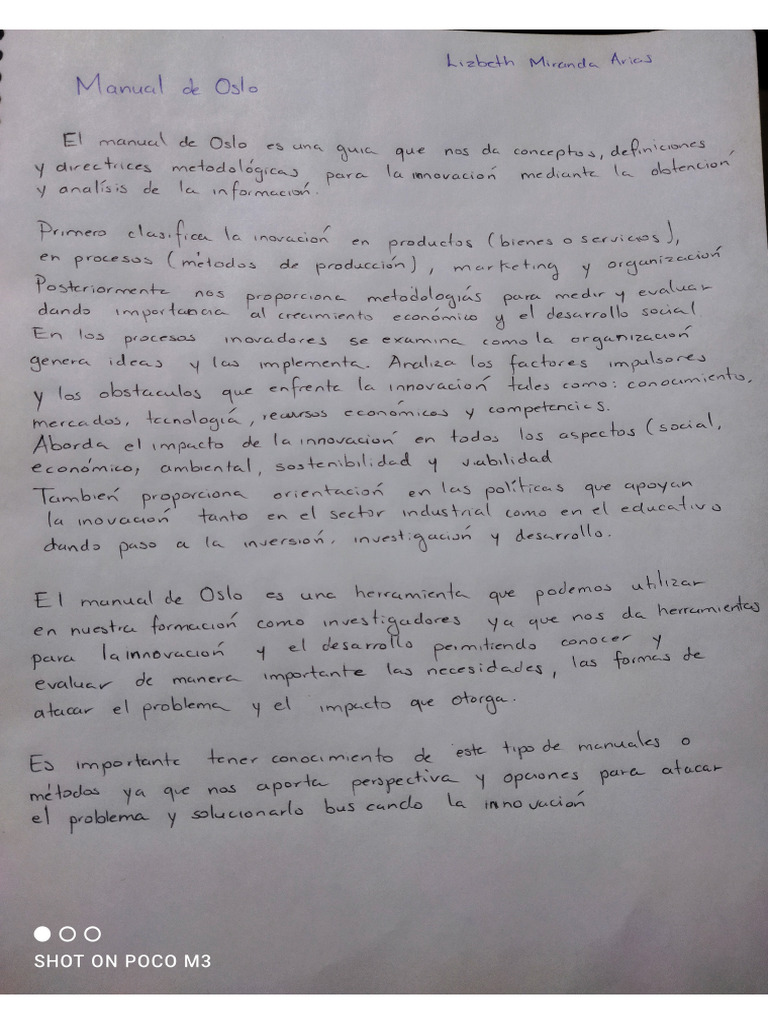 Lizbeth Miranda Arias
Manual de Oslo
El manual de Oslo es una guia que nos da conceptos, definiciones
y directrices metodológicas para la innovación mediante la obtención
y analísis de la información.
Primero clasifica la inovación en productos (bienes o servicios),
en procesos (métodos de producción), marketing y organización
Posteriormente nos proporciona metodologiás para medir y evaluar
dando importancia al crecimiento económico y el desarrollo social
En los procesos inovadores se examina como la organización
genera ideas y las implementa. Analiza los factores impulsores
y los obstaculos que enfrenta la innovación tales como: conocimiento,
mercados, tecnologiá, recursos económicos y competencias.
Aborda el impacto de la innovación en todos los aspectos (social,
económico, ambiental, sostenibilidad y viabilidad
También proporciona orientación en las políticas que apoyan
la inovación tanto en el sector industrial como en el educativo
dando paso a la inversión, investigación y desarrollo.
El manual de Oslo es una herramienta que podemos utilizar
en nuestra formación como investigadores ya que nos da herramientas
para la innovación y el desarrollo permitiendo conocer y
evaluar de manera importante las necesidades, las formas de
atacar el problema y el impacto que otorga.
Es importante tener conocimiento de este tipo de manuales o
métodos ya que nos aporta perspectiva y opciones para atacar
el problema y solucionarlo buscando la innovación
SHOT ON POCO M3